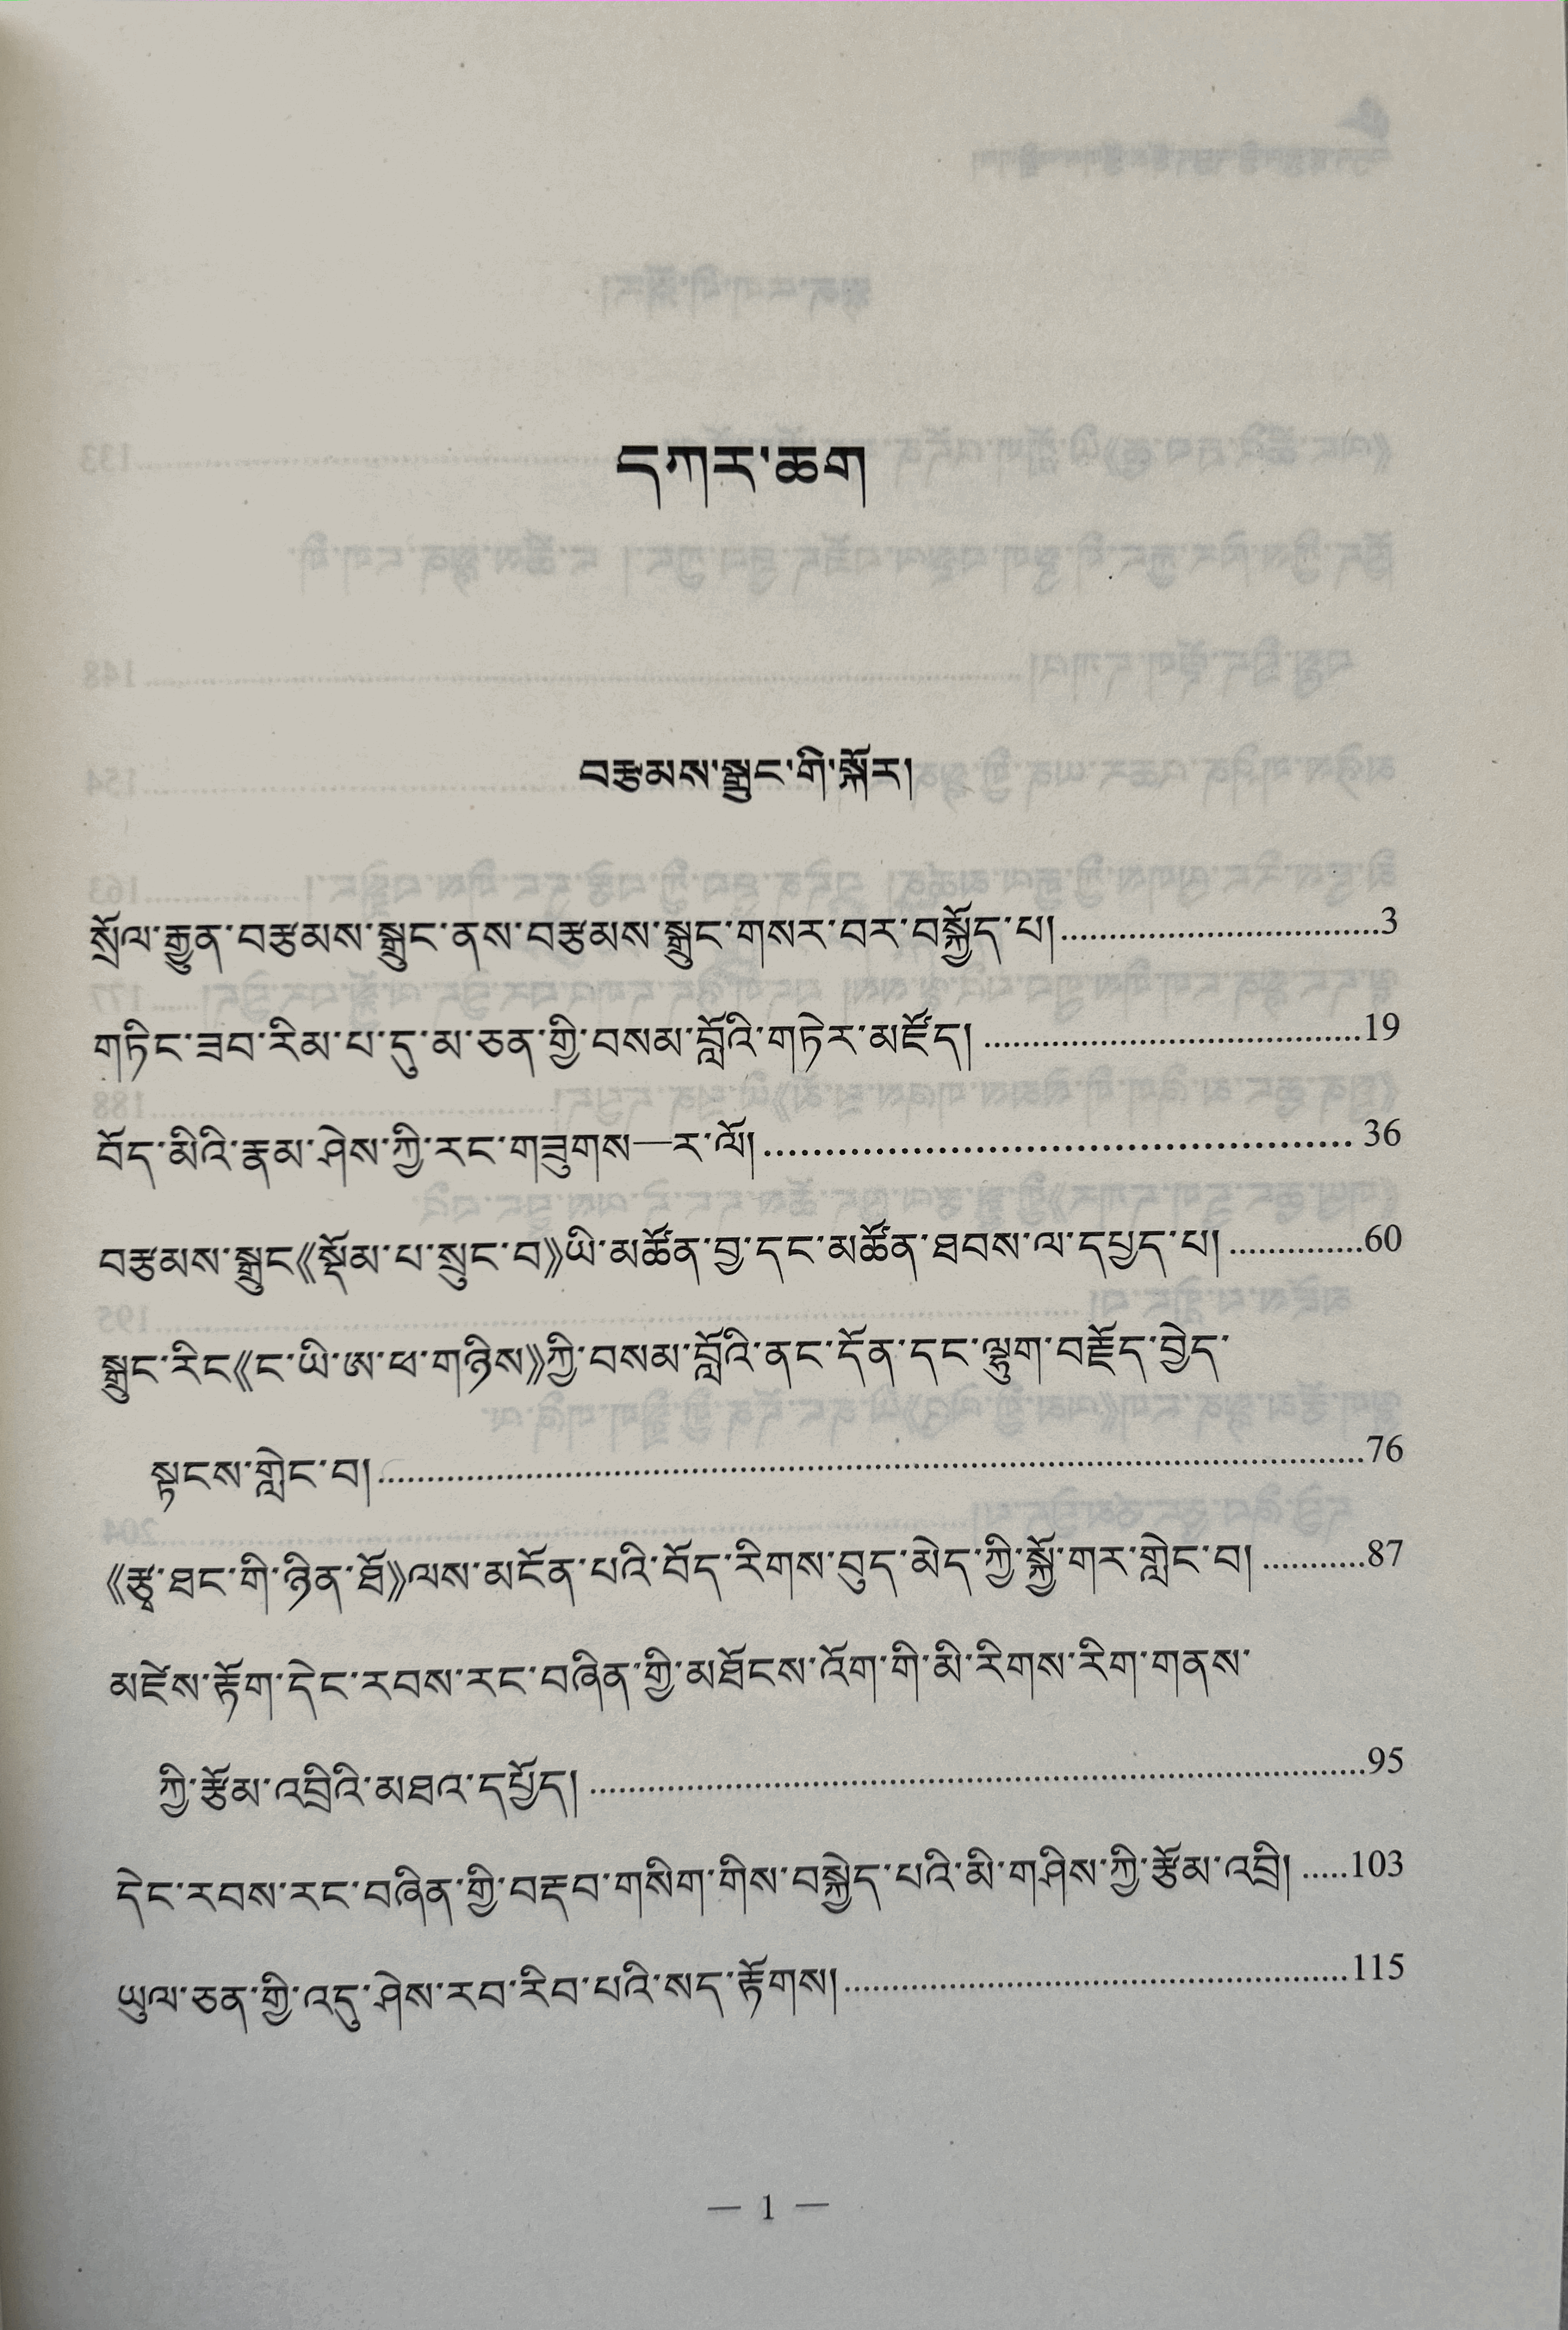 དཀར་ཆག
བརྩམས་སྒྲུང་གི་སྐོར།
སྲོལ་རྒྱུན་བརྩམས་སྒྲུང་ནས་བརྩམས་སྒྲུང་གསར་བར་བསྐྱོད་པ། ................................3
གཏིང་ཟབ་རིམ་པ་དུ་མ་ཅན་གྱི་བསམ་བློའི་གཏེར་མཛོད། ......................................19
བོད་མིའི་རྣམ་ཤེས་ཀྱི་རང་གཟུགས—ར་ལོ། ................................................36
བརྩམས་སྒྲུང《སྡོམ་པ་སྲུང་བ》ཡི་མཚོན་བྱ་དང་མཚོན་ཐབས་ལ་དཔྱད་པ། ..............60
སྒྲུང་རིང《ང་ཡི་ཨ་ཕ་གཉིས》ཀྱི་བསམ་བློའི་ནང་དོན་དང་ལྷུག་བརྗོད་བྱེད་
སྟངས་གླེང་བ། ....................................................................................................76
《རྩྭ་ཐང་གི་ཉིན་ཐོ》ལས་མངོན་པའི་བོད་རིགས་བུད་མེད་ཀྱི་སྐྱོ་གར་གླེང་བ། ...........87
མཛེས་རྟོག་དེང་རབས་རང་བཞིན་གྱི་མཐོངས་འོག་གི་མི་རིགས་རིག་གནས་
ཀྱི་རྩོམ་འབྲིའི་མཐའ་དཔྱོད། ................................................................................95
དེང་རབས་རང་བཞིན་གྱི་བརྡབ་གསིག་གིས་བསྐྱེད་པའི་མི་གཤིས་ཀྱི་རྩོམ་འབྲི། .....103
ཡུལ་ཅན་གྱི་འདུ་ཤེས་རབ་རིབ་པའི་སད་རྟོགས། ....................................................115
— 1 —